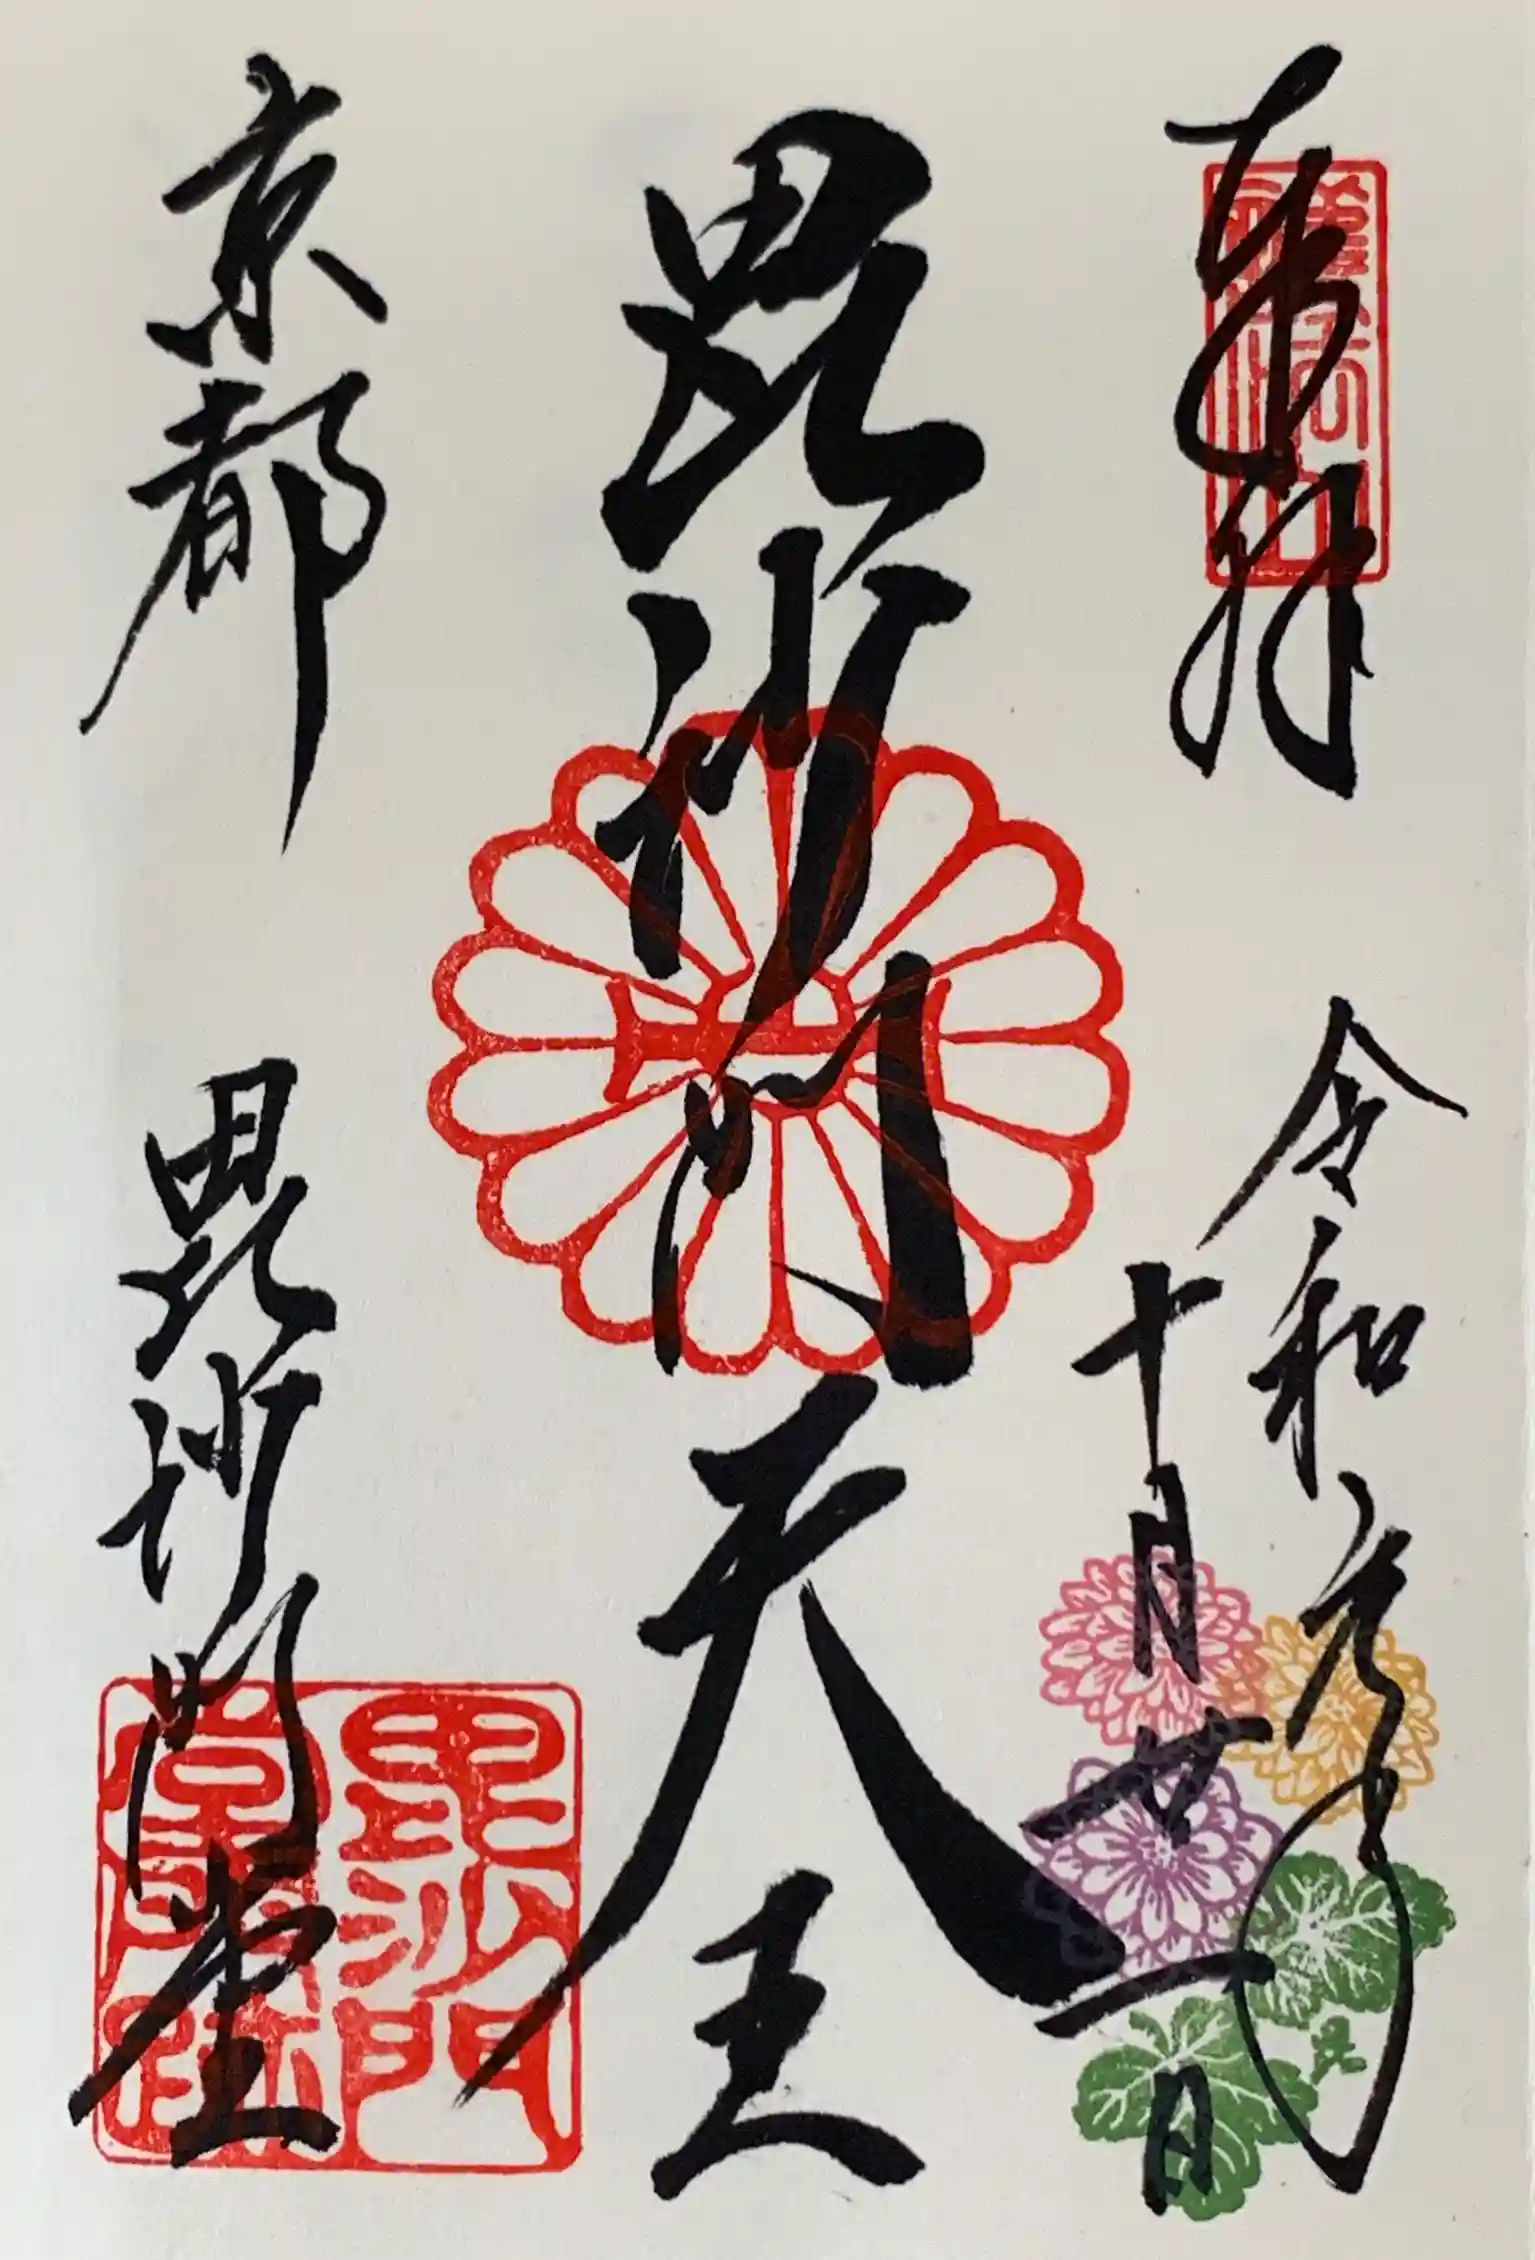 奉拝
令和元年
十月廿一日
毘沙門天王
京都
毘沙門堂
毘沙門
堂門跡
護法山